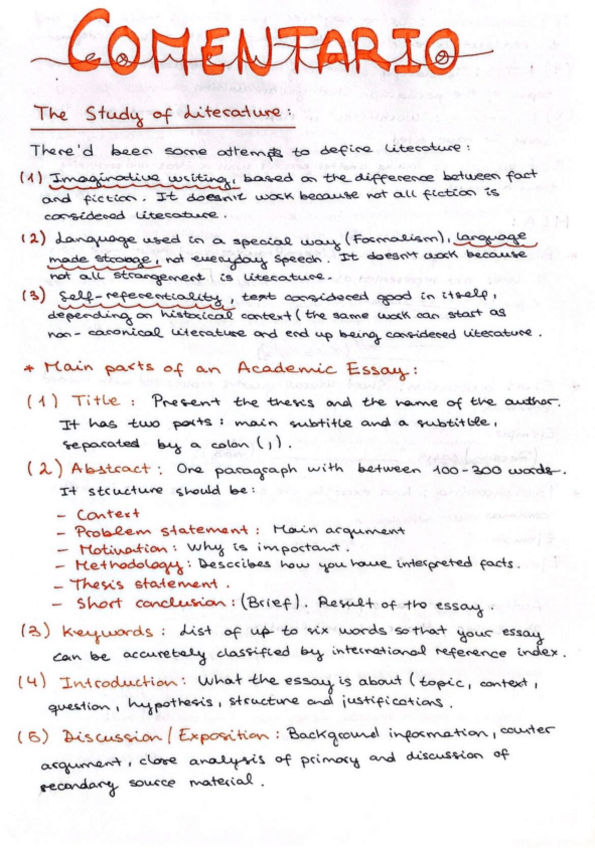 COMENTARIO
The Study of Literature:
There'd been some attempts to define literature:
(1) Imaginative writing, based on the difference between fact
and fiction. It doesn't work because not all fiction is
considered literature.
(2) Language used in a special way (Formalism), language
made strange, not everyday speech. It doesn't work because
not all strangement is literature.
(3) Self-referentiality, text considered good in itself,
depending on historical context (the same work can start as
non-canonical literature and end up being considered literature.
* Main parts of an Academic Essay:
(1) Title: Present the thesis and the name of the author.
It has two parts: main subtitle and a subtitble,
separated by a colon (,).
(2) Abstract: One paragraph with between 100-300 words.
It structure should be:
- Context
- Problem statement: Main argument
- Motivation: Why is important.
- Methodology: Describes how you have interpreted facts.
- Thesis statement.
- Short conclusion: (Brief). Result of the essay.
(3) Keywords: List of up to six words so that your essay
can be accuretely classified by international reference index.
(4) Introduction: What the essay is about (topic, context,
question, hypothesis, structure and justifications.
(5) Discussion/Exposition: Background information, counter
argument, close analysis of primary and discussion of
secondary source material.